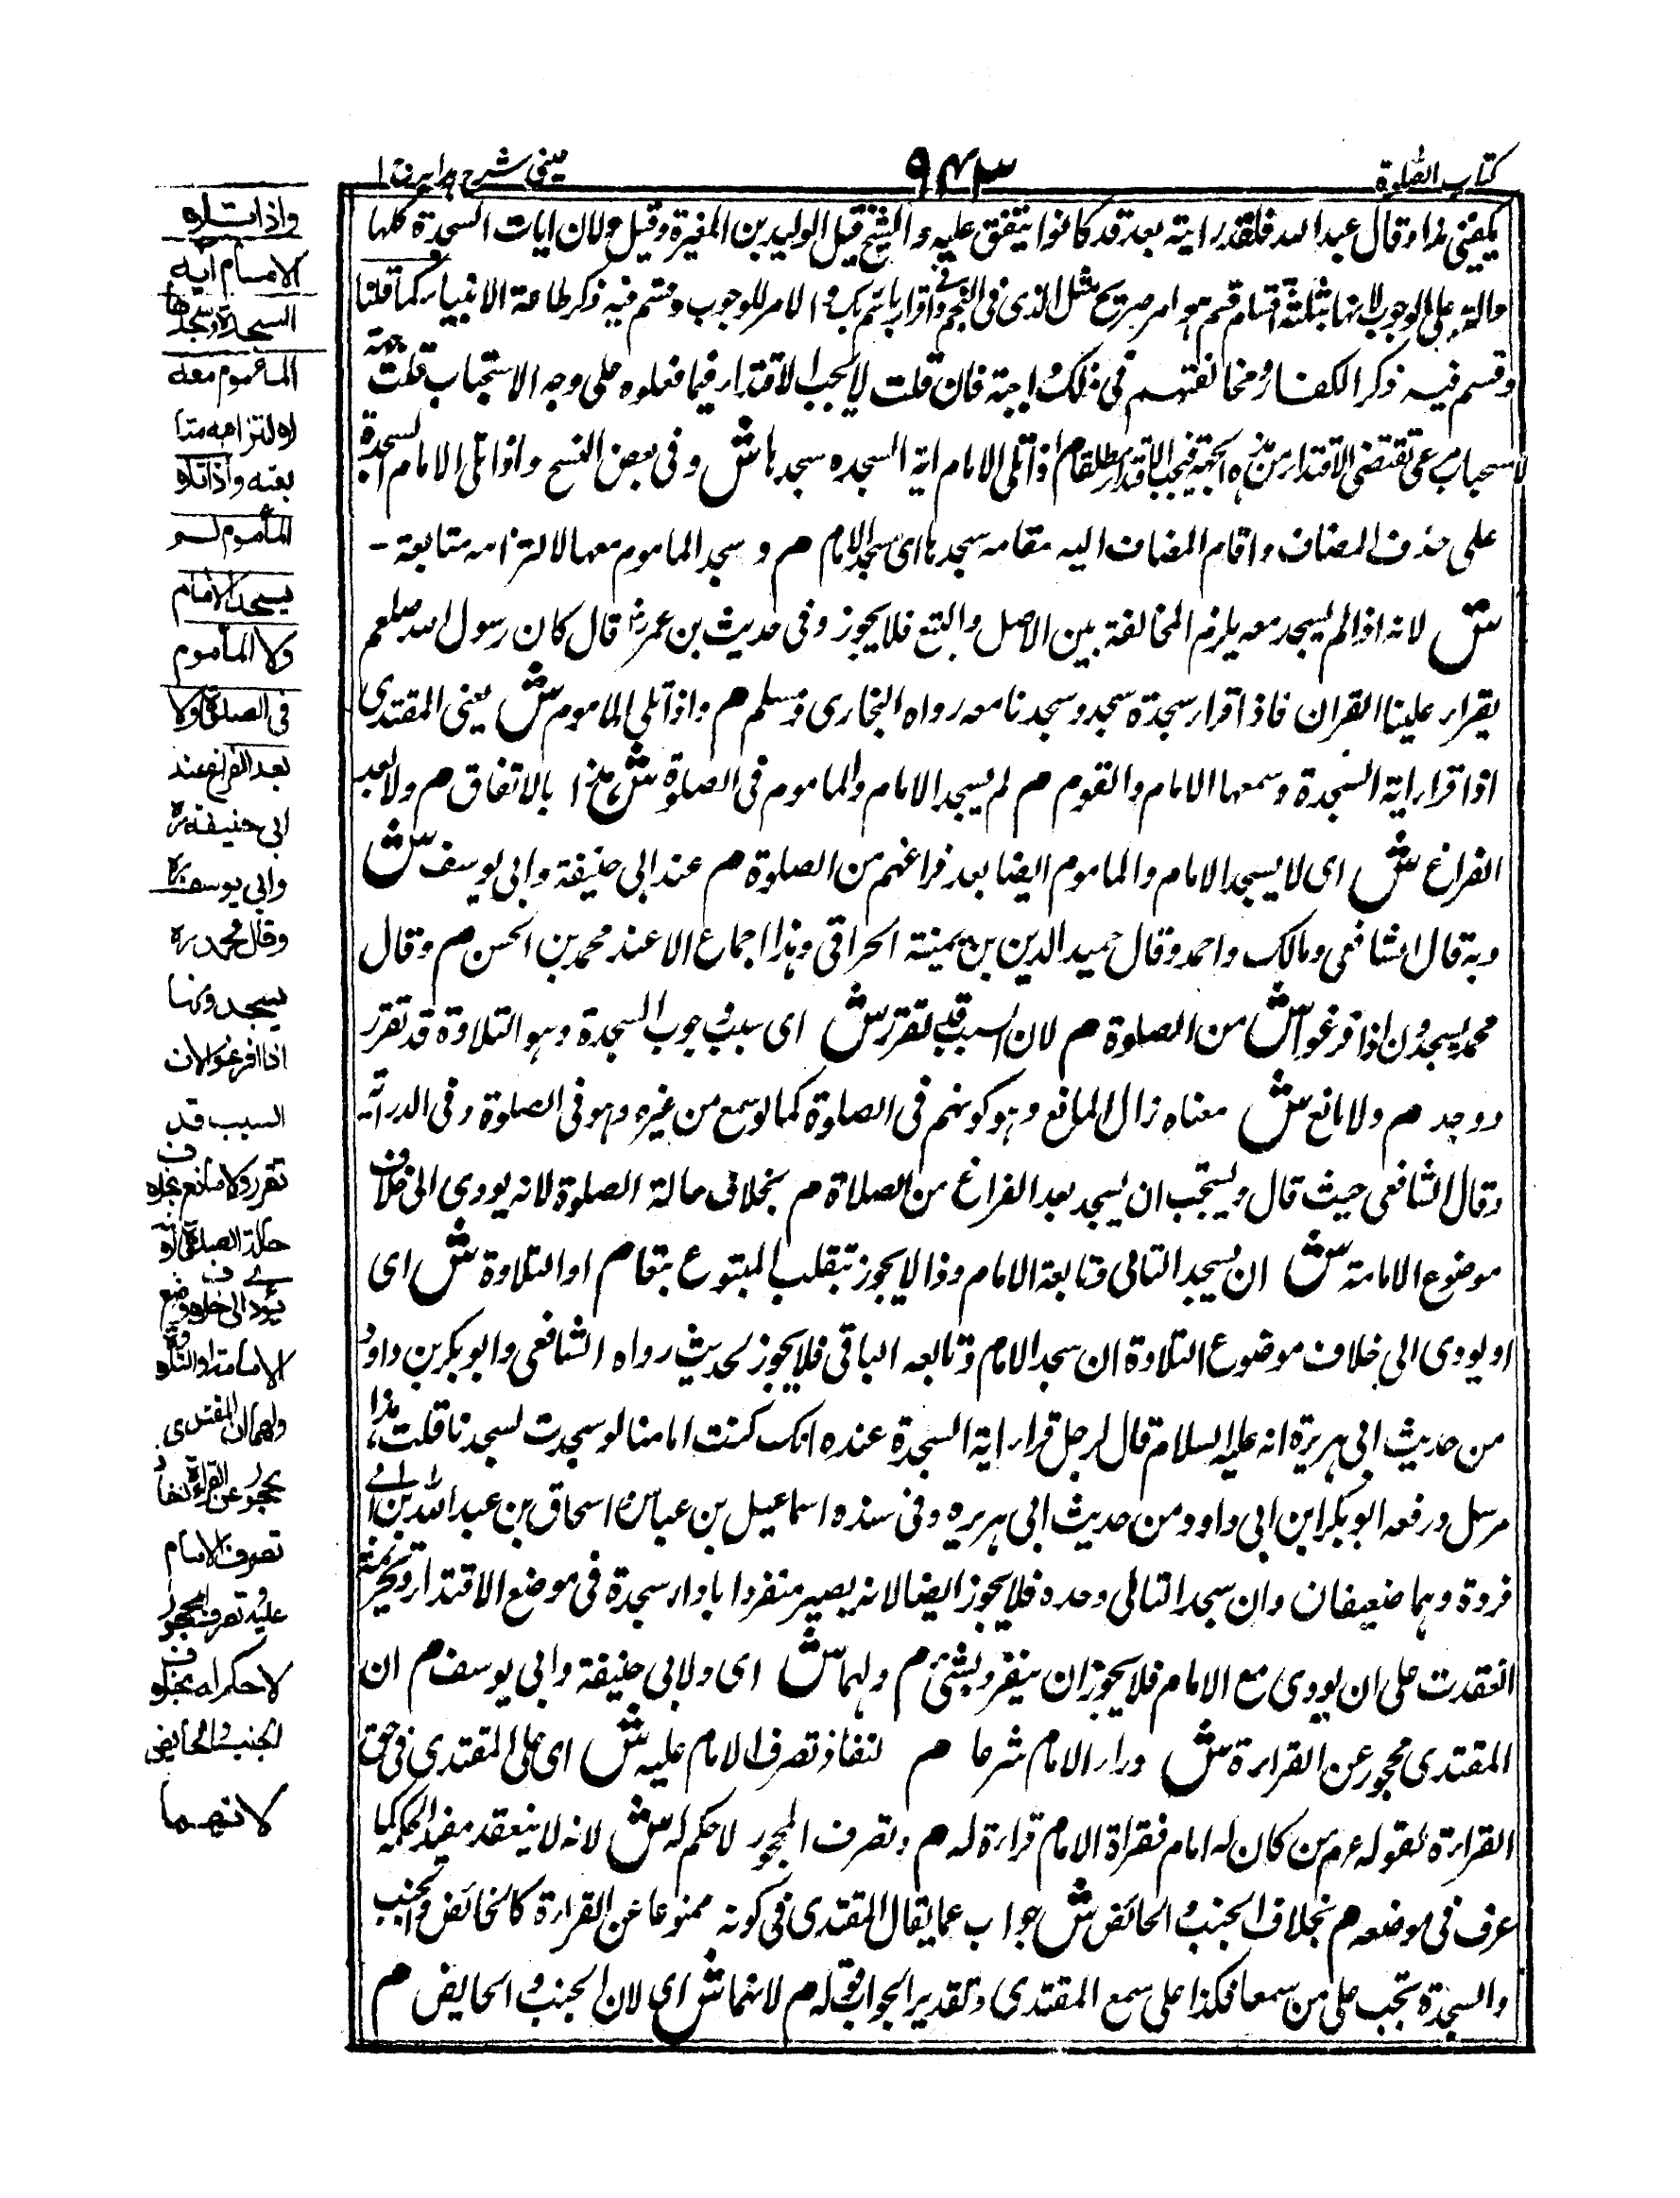 كتاب الصلوة
٩٤٣
عينى شرح هدايه ج ١
يكفينى هذا وقال عبد الله فلقد رايته بعد قد كانوا يتفق عليه والشيخ قيل الوليد بن المغيرة وقيل ولان ايات السجدة كلها
على الوجوب لانها ثلثة اقسام قسم هو امر صريح مثل الذى فى النجم وفى اقرا باسم ربك والامر للوجوب وقسم فيه ذكر طاعة الانبياء كما قلنا
وقسم فيه ذكر الكفار ومخالفتهم فى ذلك واجبة فان قلت لا يجب الاقتداء فيما فعلوه على وجه الاستحباب قلت جهة
تقتضى الاقتداء من هذه الجهة فيجب الاقتداء مطلقا م اذا تلى الامام اية السجده سجدها ش وفى بعض النسخ واذا تلى الامام السجدة
على حذف المضاف واقام المضاف اليه مقامه سجدها اى سجد الامام م وسجد الماموم معها لالتزامه متابعة -
ش لانه اذا لم يسجد معه يلزم المخالفة بين الاصل والتبع فلا يجوز وفى حديث بن عمر رض قال كان رسول الله صلعم
يقراء علينا القران فاذا قراء سجدة سجد وسجدنا معه رواه البخارى ومسلم م واذا تلى الماموم ش يعنى المقتدى
اذا قراء اية السجدة وسمعها الامام والقوم م لم يسجد الامام والماموم فى الصلوة ش هذا بالاتفاق م ولا بعد
الفراغ ش اى لا يسجد الامام والماموم ايضا بعد فراغهم من الصلوة م عند ابى حنيفة وابى يوسف ش
وبه قال الشافعى ومالك واحمد وقال حميد الدين بن تيمية الحراقى وهذا اجماع الا عند محمد بن الحسن م وقال
محمد يسجدون اذا فرغوا ش من الصلوة م لان السبب قد تقرر ش اى سبب وجوب السجدة وهو التلاوة قد تقرر
ووجد م ولا مانع ش معناه زال المانع وهو كونهم فى الصلوة كما لو سمع من غيره وهو فى الصلوة وفى الدراية
وقال الشافعى حيث قال ويستحب ان يسجد بعد الفراغ من الصلاة م بخلاف حالة الصلوة لانه يودى الى خلاف
موضوع الامامة ش ان يسجد التالى وتابعة الامام وذا لا يجوز تبقلب المتبوع تبعا م او التلاوة ش اى
او يودى الى خلاف موضوع التلاوة ان سجد الامام وتابعه الباقى فلا يجوز لحديث رواه الشافعى وابو بكر بن داود
من حديث ابى هريرة انه عليه السلام قال لرجل قراء اية السجدة عنده انك كنت امامنا لو سجدت لسجدنا قلت هذا
مرسل ورفعه ابو بكر ابن ابى داود من حديث ابى هريره وفى سنده اسماعيل بن عياش اسحاق بن عبد الله بن ابى
فروة وهما ضعيفان وان سجد التالى وحده فلا يجوز ايضا لانه يصير منفردا باداء سجدة فى موضع الاقتداء وتحريمته
انعقدت على ان يودى مع الامام فلا يجوز ان ينفرد بشئ م ولهما ش اى ولابى حنيفة وابى يوسف م ان
المقتدى محجور عن القراءة ش وراء الامام شرعا م لنفاذ تصرف الامام عليه ش اى على المقتدى فى حق
القراءة لقوله عم من كان له امام فقراة الامام قراءة له م وتصرف المحجور لا حكم له ش لانه لا ينعقد مفيد الحكمه كما
عرف فى موضعه م بخلاف الجنب والحائض ش جواب عما يقال المقتدى فى كونه ممنوعا عن القراءة كالحائض والجنب
والسجدة تجب على من سمعها فكذا على سمع المقتدى وتقدير الجواب قوله م لانهما ش اى لان الجنب والحايض م
واذا تلا
الامام آية
السجدة سجدها
المأموم معه
لالتزامه متا
بعته واذا تلا
المأموم لم
يسجد الامام
ولا المأموم
فى الصلوة ولا
بعد الفراغ عند
ابى حنيفة رح
وابى يوسف رح
وقال محمد رح
يسجدونها
اذا فرغوا لان
السبب قد
تقرر ولا مانع بخلاف
حالة الصلوة لانه
يؤدى الى خلاف وضع
الامامة او التلاوة
ولهما ان المقتدى
محجور عن القراءة لنفاذ
تصرف الامام
عليه وتصرف المحجور
لا حكم له بخلاف
الجنب والحايض
لانهما